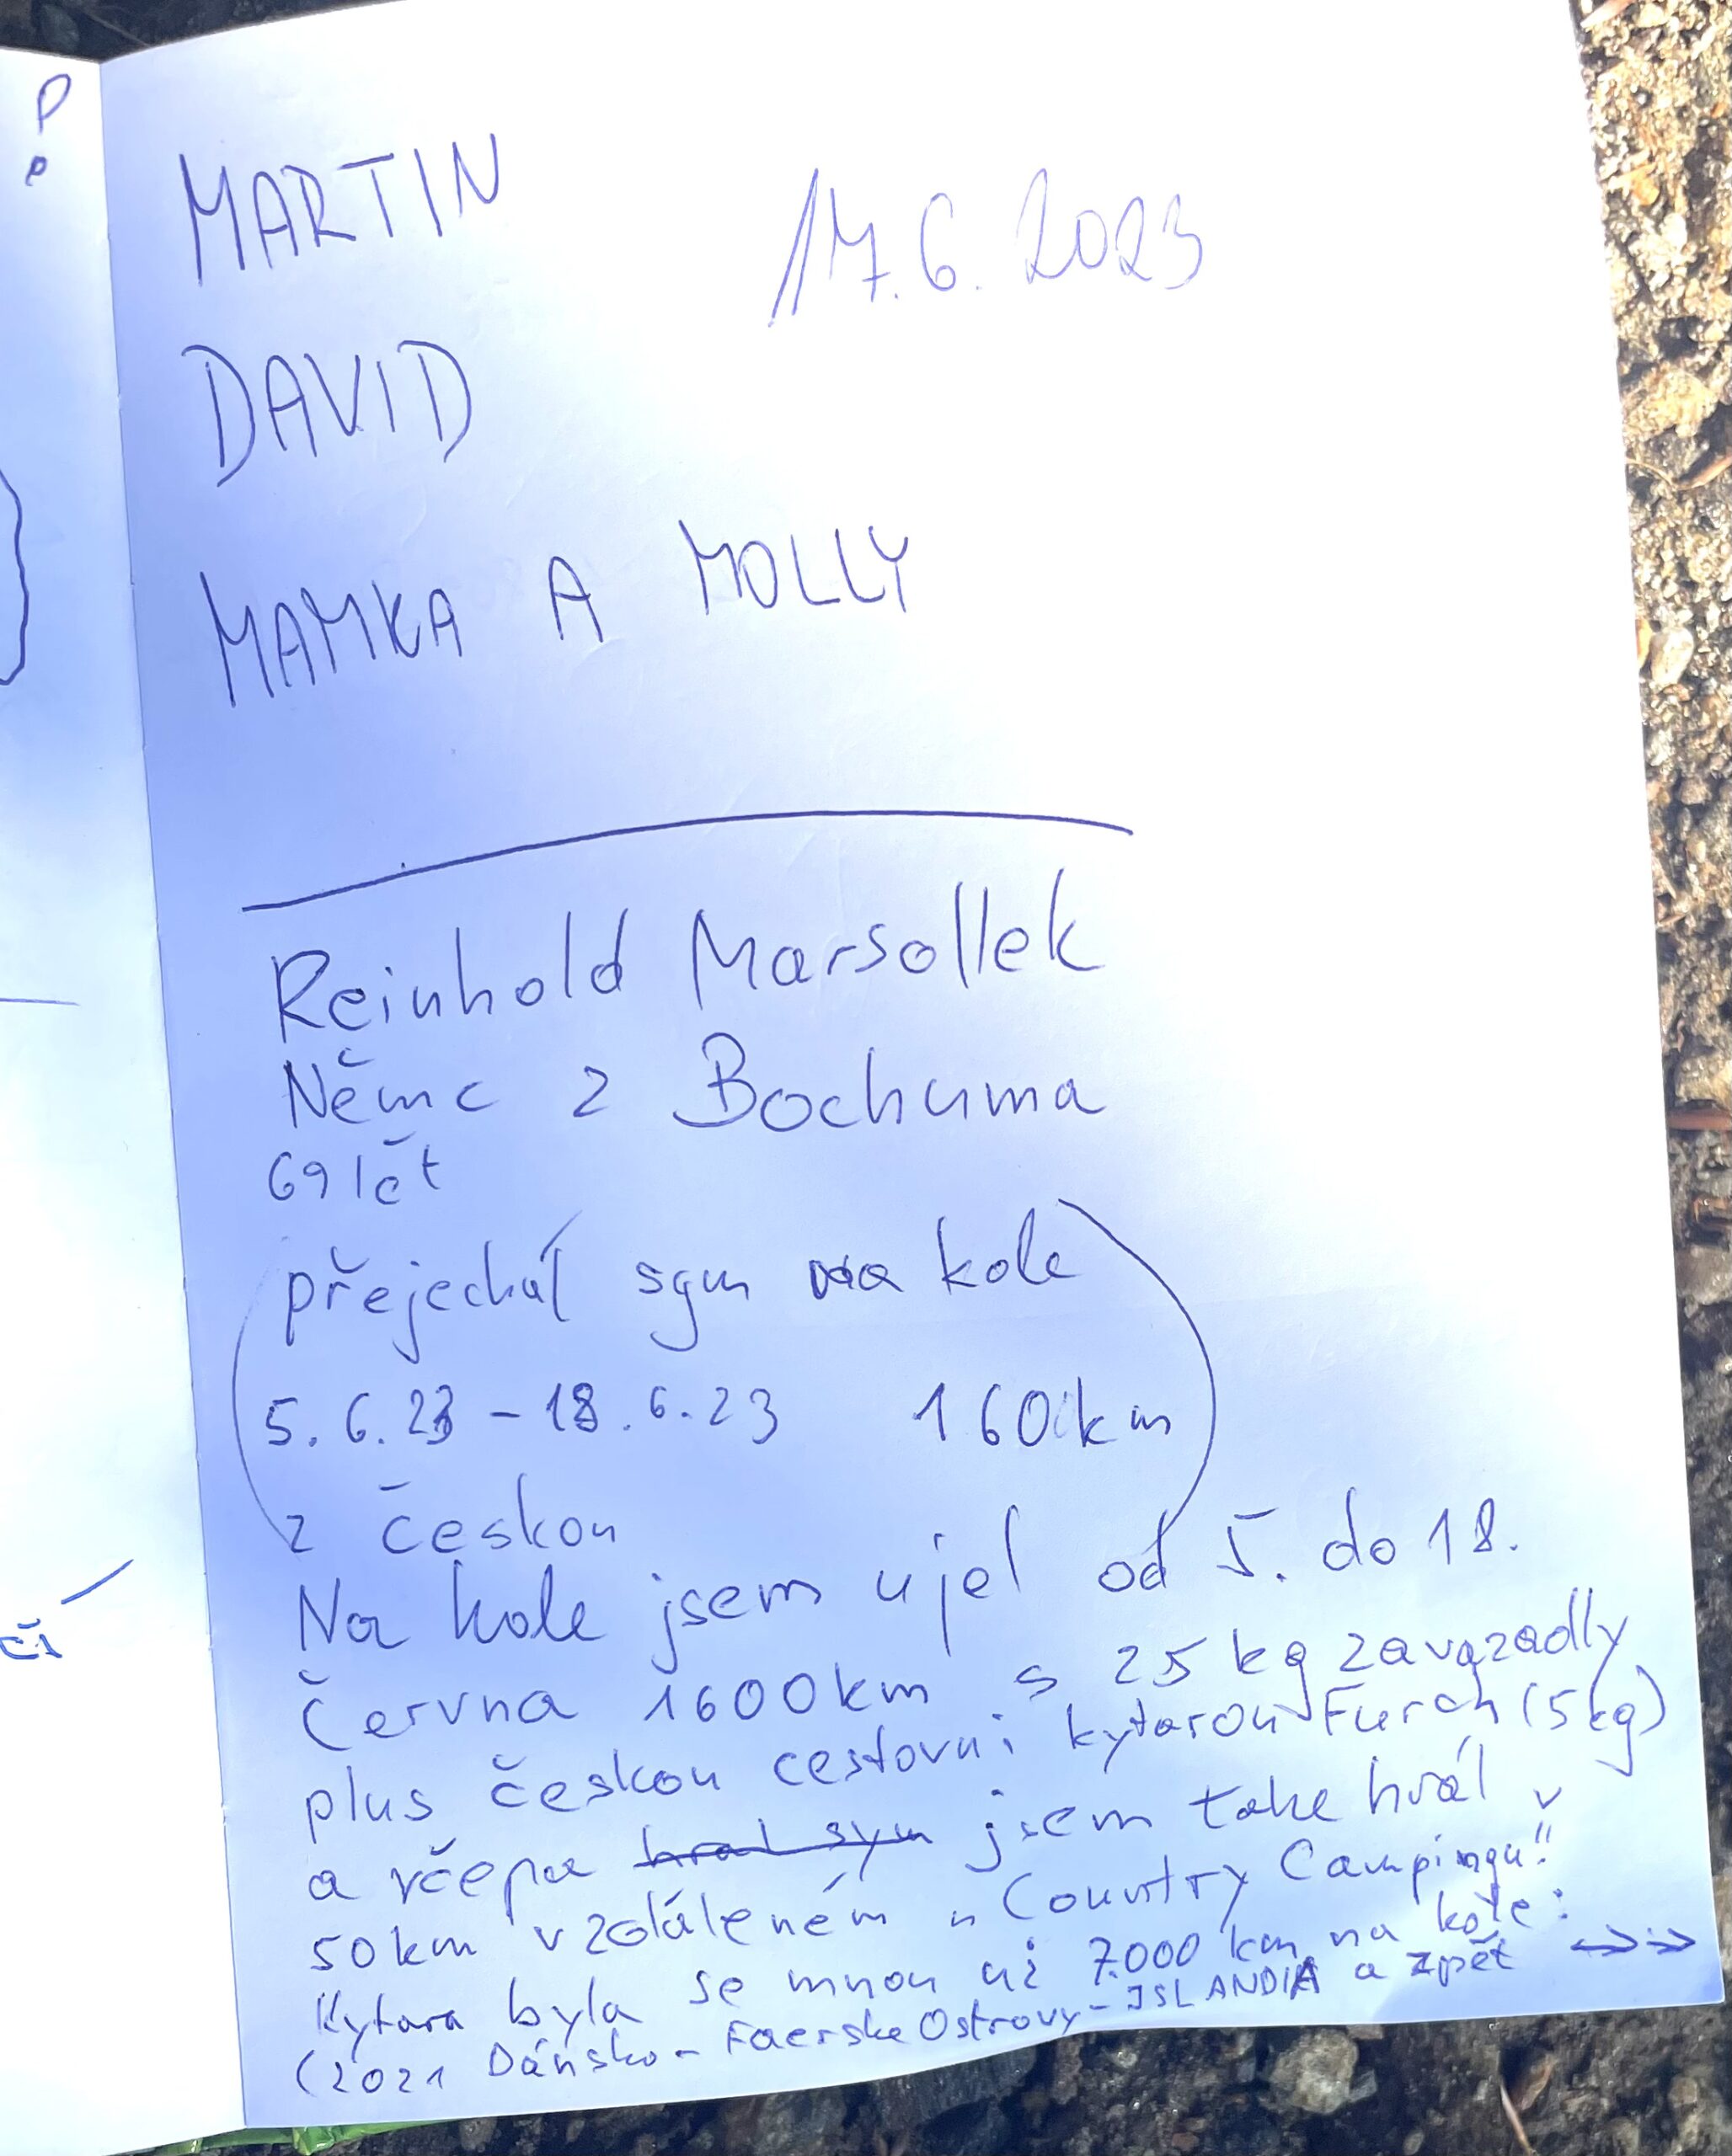 MARTIN
17.6.2023
DAVID
MAMKA A MOLLY
Reinhold Marsollek
Němc z Bochuma
69 lět
přejechál sym na kole
5.6.23 – 18.6.23 1600km
z českou
Na kole jsem ujel od 5. do 18.
Června 1600km s 25 kg zavazadly
plus českou cestovni kytarou Furch (5kg)
a včera hral sym jsem take hrál v
50km vzdáleném „Country Campingu"
Kytara byla se mnou už 7.000 km na kole:
(2021 Dánsko – Faerske Ostrovy – ISLANDIA a zpět →»